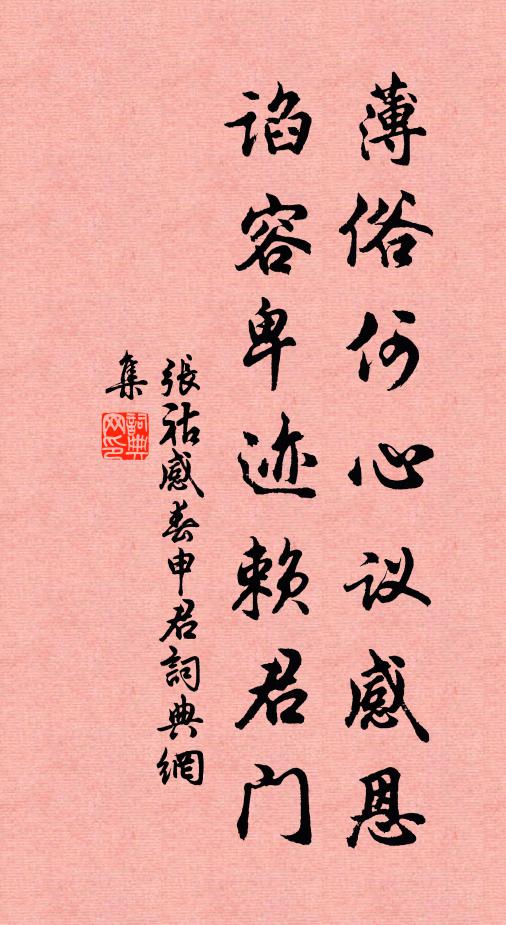 薄俗何心议感恩
谄容卑迹赖君门
張祜感春申君詞典網
集
詞典
网印